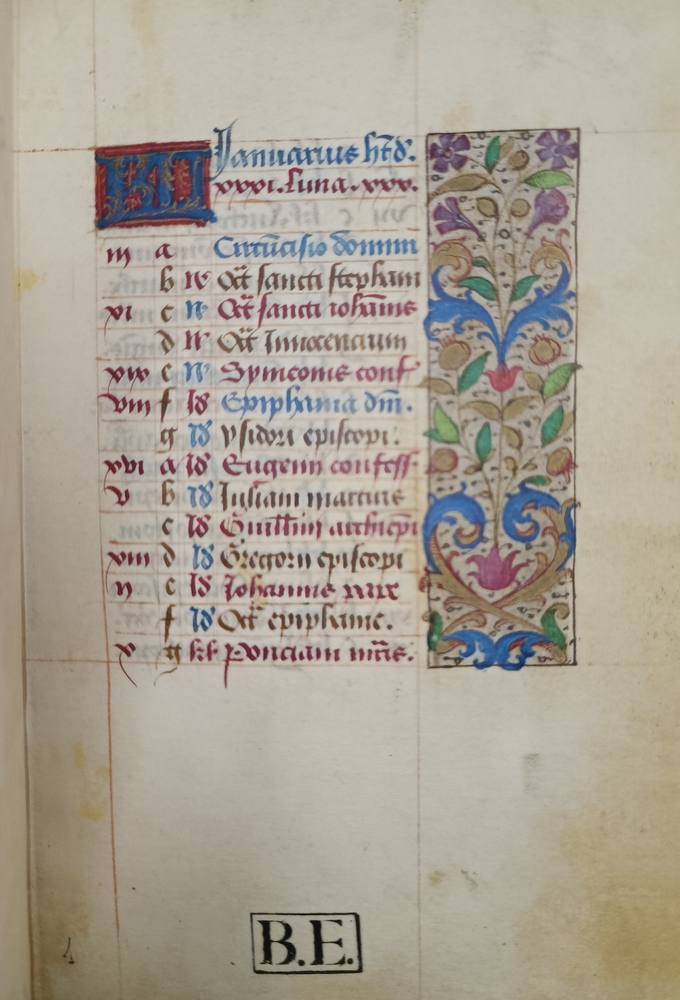 KL Januarius ht̄ d'.
xxxi. Luna. xxx.
iii a Circūcisio domini
b iv Oct̄ sancti stephani
xi c iii Oct̄ sancti iohānis
d ii Oct̄ Innocencium
xix e n Symeonis conf'
viii f id Epiphania dm̄.
g id ysidori episcopi.
xvi a id Eugenii confess'
v b id Juliani martiris
c id Guillīmi archiep̄i
xiii d id Gregorii episcopi
ii e id Johannis pape
f id Oct̄ epiphanie.
x g kł Ponciani mr̄is.
B.E.
1